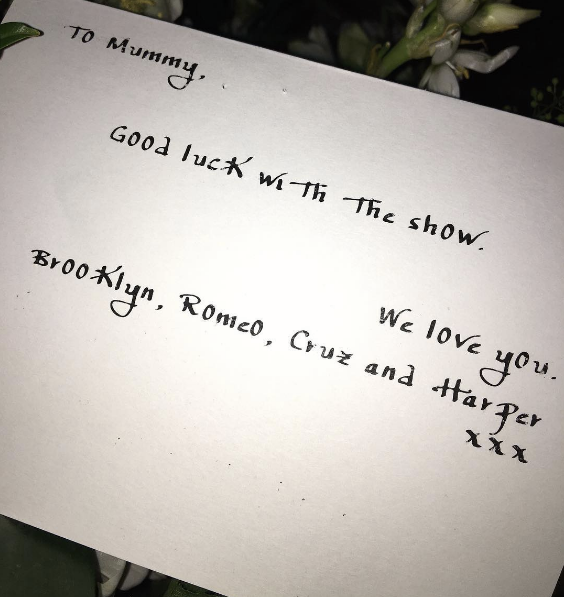 To Mummy,
Good luck with the show.
We love you.
Brooklyn, Romeo, Cruz and Harper
xxx